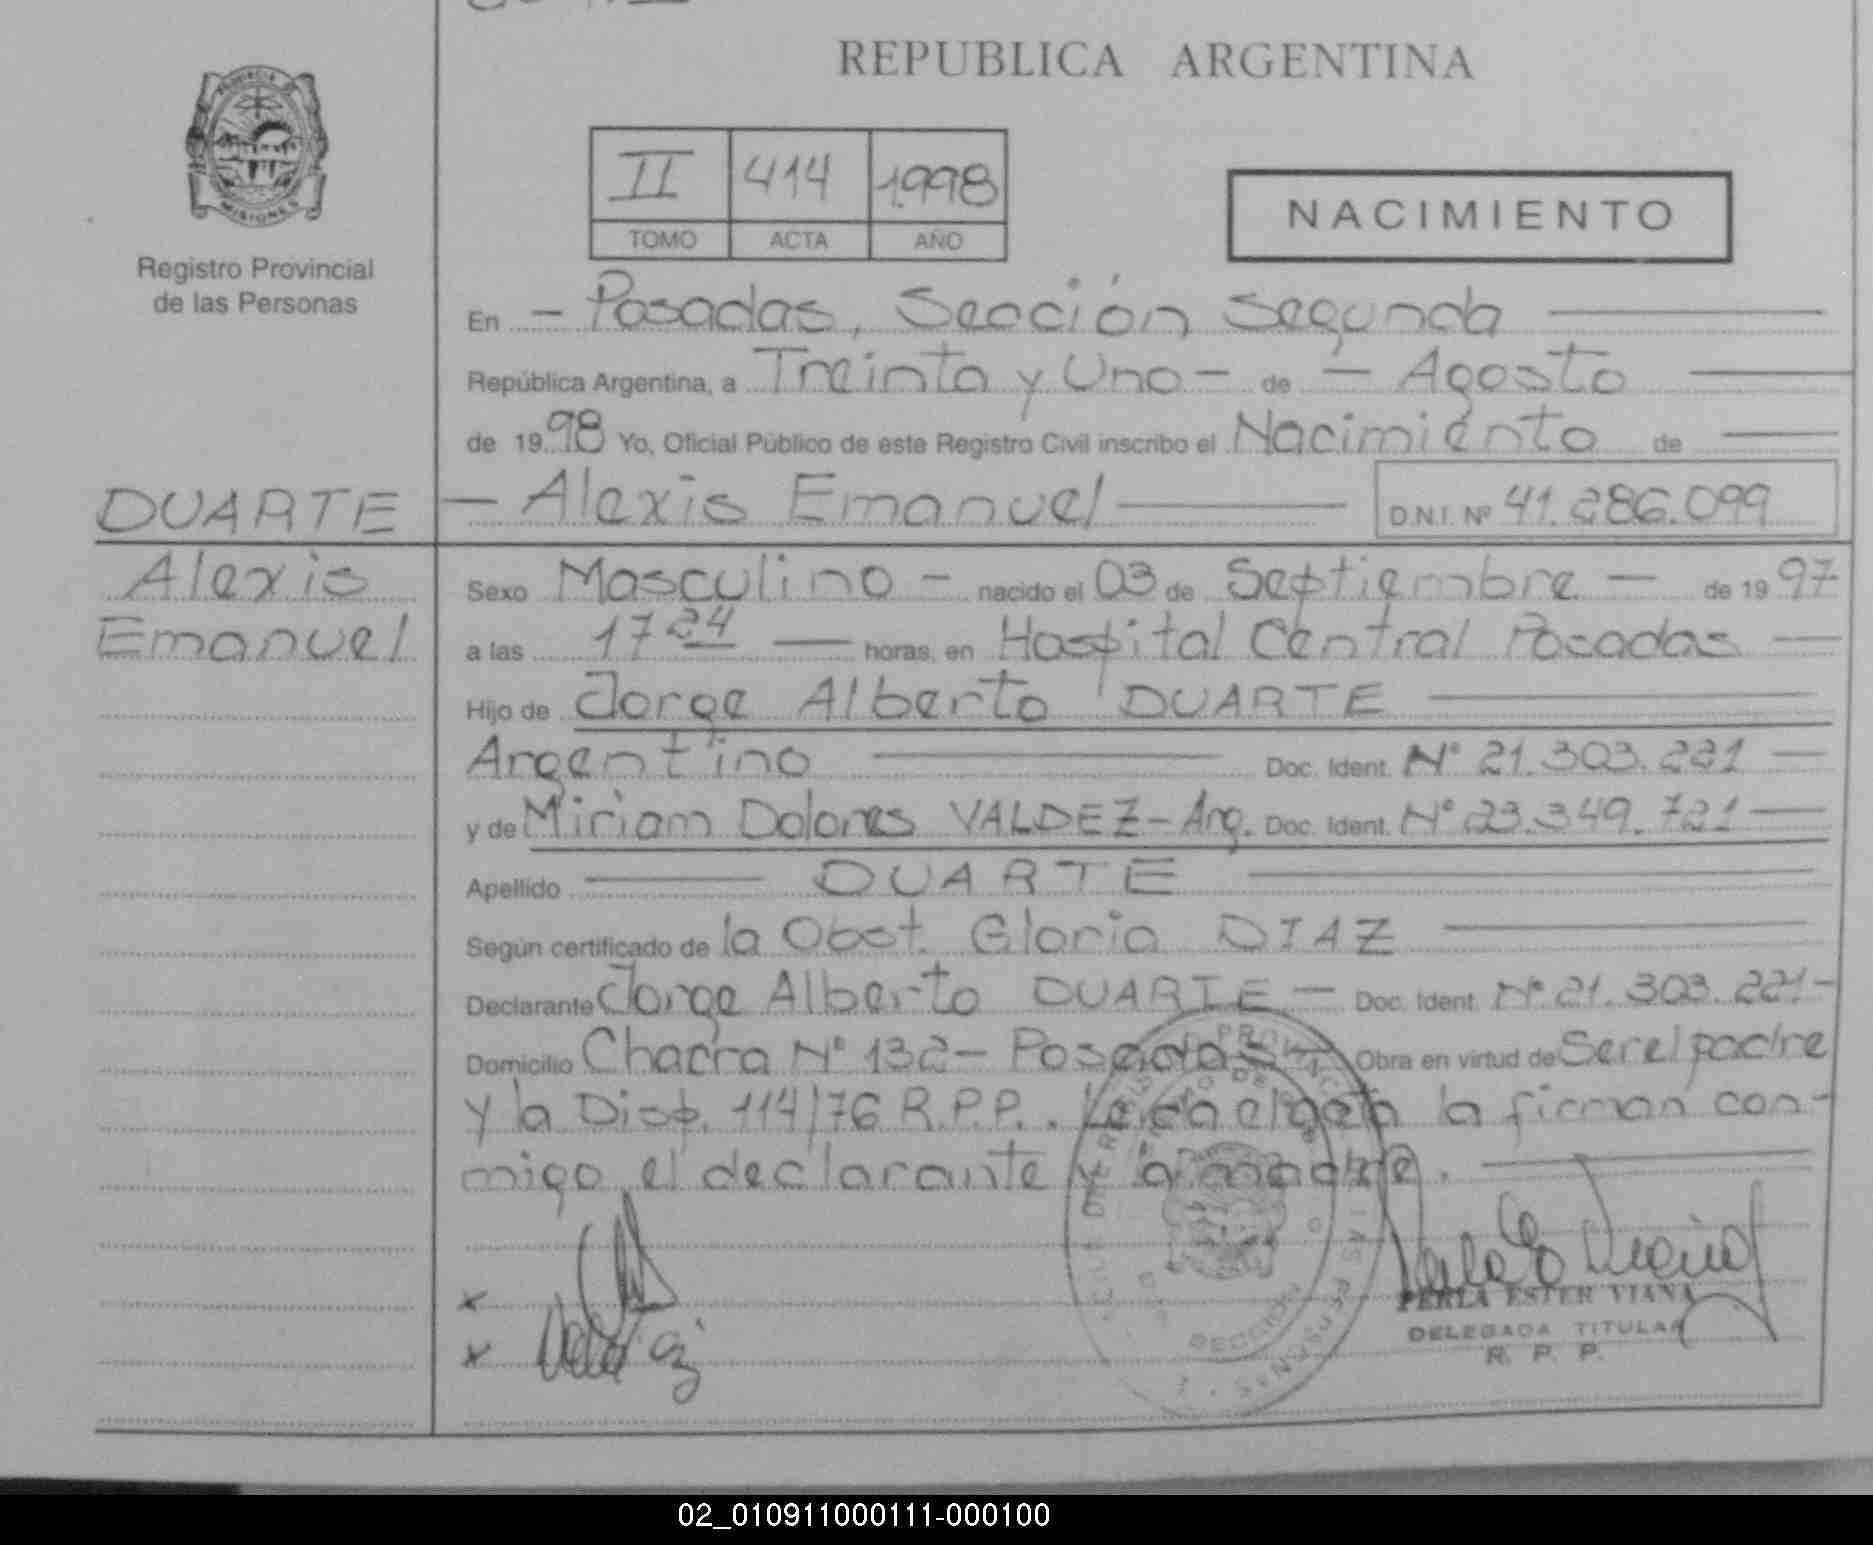 REPUBLICA ARGENTINA
PROVINCIA
MISIONES
Registro Provincial
de las Personas
II 414 1998
TOMO ACTA AÑO
NACIMIENTO
En - Posadas, Sección Segunda
República Argentina, a Treinta y Uno - de - Agosto
de 1998 Yo, Oficial Público de este Registro Civil inscribo el Nacimiento de
DUARTE - Alexis Emanuel D.N.I. Nº 41.286.099
Alexis
Emanuel
Sexo Masculino - nacido el 03 de Septiembre - de 1997
a las 17 24 horas, en Hospital Central Posadas -
Hijo de Jorge Alberto DUARTE
Argentino Doc. Ident. Nº 21.303.221 -
y de Miriam Dolores VALDEZ - Arg. Doc. Ident. Nº 23.349.721 -
Apellido DUARTE
Según certificado de la Obst. Gloria DIAZ
Declarante Jorge Alberto DUARTE - Doc. Ident. Nº 21.303.221 -
Domicilio Chacra Nº 132 - Posadas - Obra en virtud de Ser el padre
y la Disp. 114/76 R.P.P.. Leída el acta la firman con-
migo el declarante y la madre.
x
x
PERLA ESTER VIANA
DELEGADA TITULAR
R. P. P.
SECCION
02_010911000111-000100